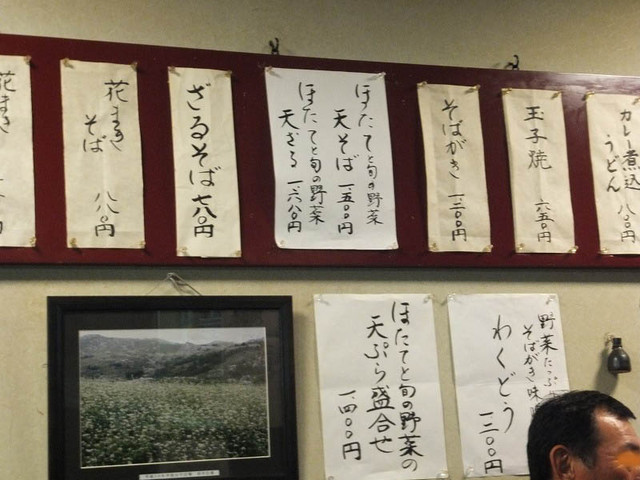 カレー煮込
うどん 八〇〇円
玉子焼 六五〇円
そばがき 一、二〇〇円
ほたてと旬の野菜
天そば 一、五〇〇円
ほたてと旬の野菜
天ざる 一、六八〇円
ざるそば 七八〇円
花まき
そば 八八〇円
花まき
野菜たっぷ
そばがき味
わくどう 一、三〇〇円
ほたてと旬の野菜の
天ぷら盛合せ
一、四〇〇円